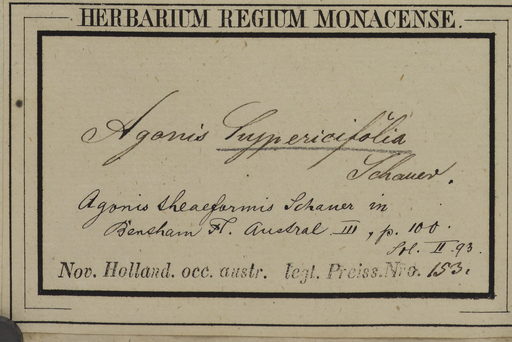 HERBARIUM REGIUM MONACENSE.
Agonis hypericifolia
Schauer.
Agonis theaeformis Schauer in
Bentham Fl. Austral III, p. 100.
II. 93.
Nov. Holland. occ. austr. legt. Preiss. Nro. 153.